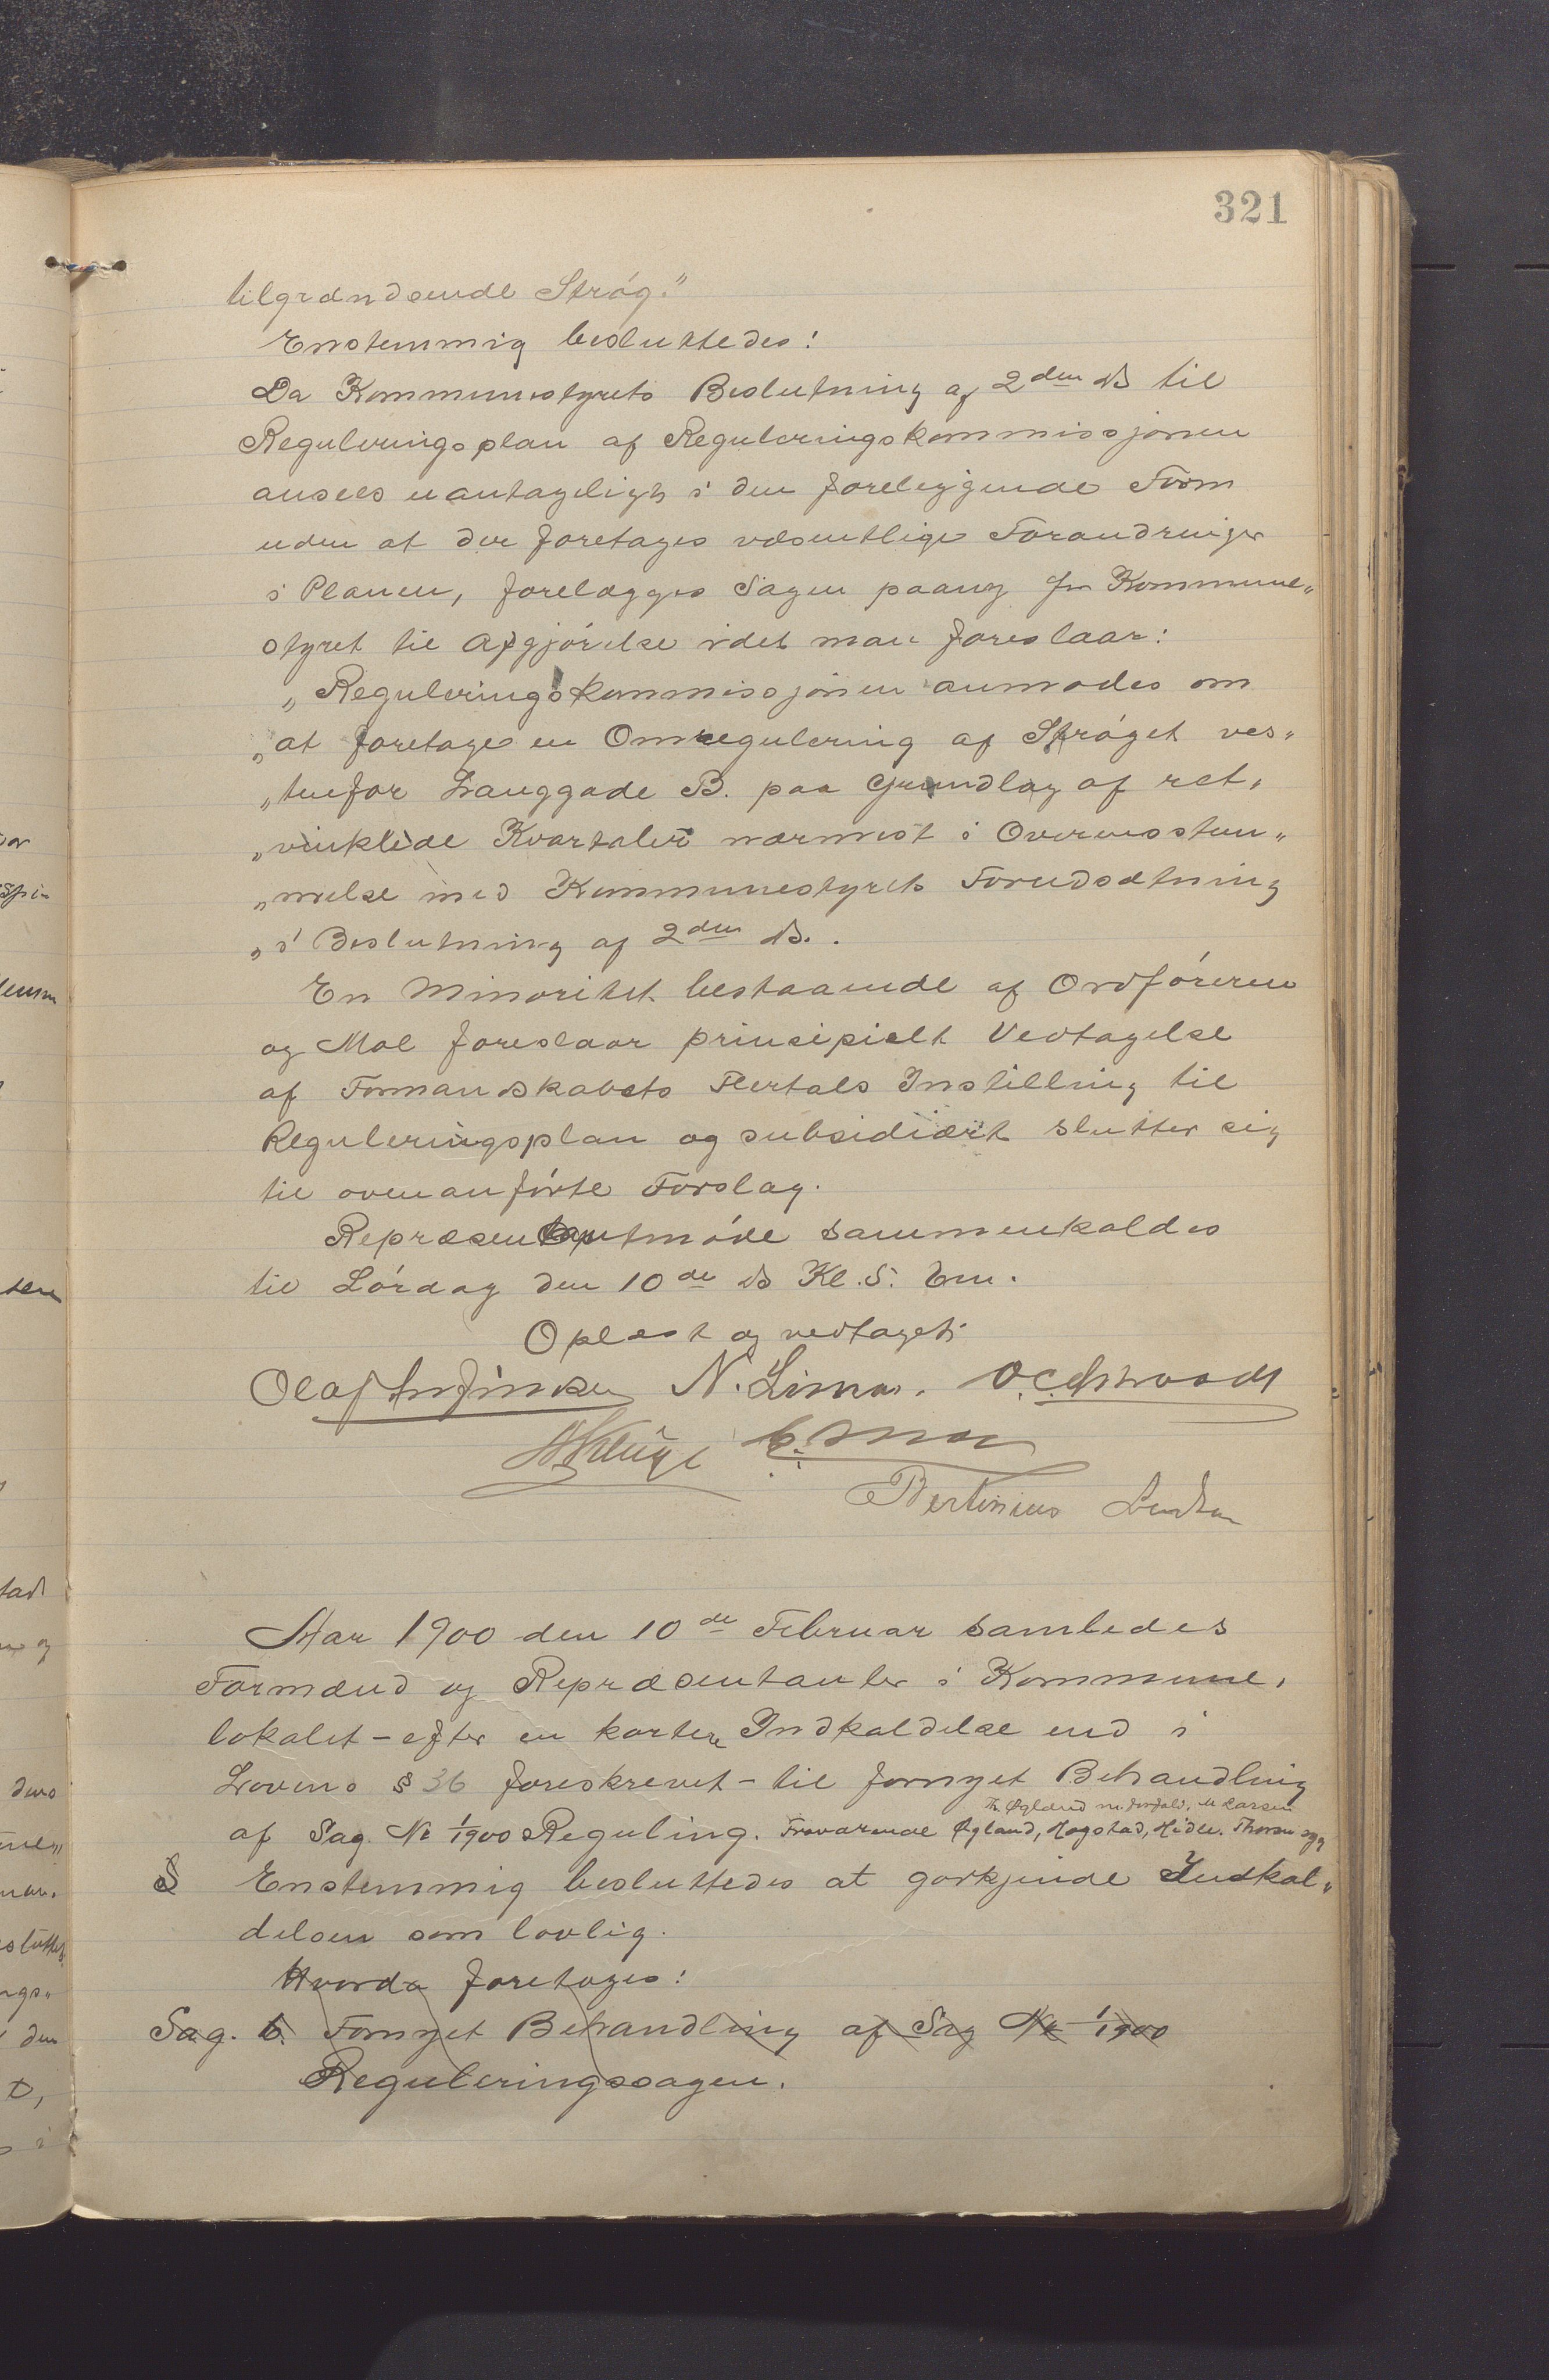 321
tilgrændsende Strøg."
Enstemmig besluttedes:
Da Kommunestyrets Beslutning af 2den ds til
Reguleringsplan af Reguleringskommissjonen
ansees uantageligt i den foreliggende Form
uden at der foretages væsentlige Forandringer
i Planen, forelægges Sagen paany for Kommune„
styret til Afgjørelse idet man foreslaar:
„Reguleringskommissjonen anmodes om
„at foretage en Omregulering af Strøget ves„
„tenfor Langgade B. paa Grundlag af ret„
„vinklede Kvartaler nærmest i Overensstem„
„melse med Kommunestyrets Forudsætning
„i Beslutning af 2den ds..
En Minoritet bestaaende af Ordføreren
og Moe foreslaar principielt Vedtagelse
af Formandskabets Flertals Instilling til
Reguleringsplan og subsidiært slutter sig
til ovenanførte Forslag.
Repræsentantmøde sammenkaldes
til Lørdag den 10de ds Kl. 5. Em.
Oplæst og vedtaget.
Olaf N. Lima.
Bertinius
Aar 1900 den 10de Februar samledes
Formænd og Repræsentanter i Kommune„
lokalet - efter en kortere Indkaldelse end i
Lovens § 36 foreskrevet - til fornyet Behandling
Th. Øgland m. forfald, M Larsen
af Sag. No 1/1900 Reguling. Fraværende Øgland, Hogstad, Hidle. Thorsen syg
§ Enstemmig besluttedes at godkjende Indkal„
delsen som lovlig.
Hvorda foretoges:
Sag. 6. Fornyet Behandling af Sag No 1/1900
Reguleringssagen.